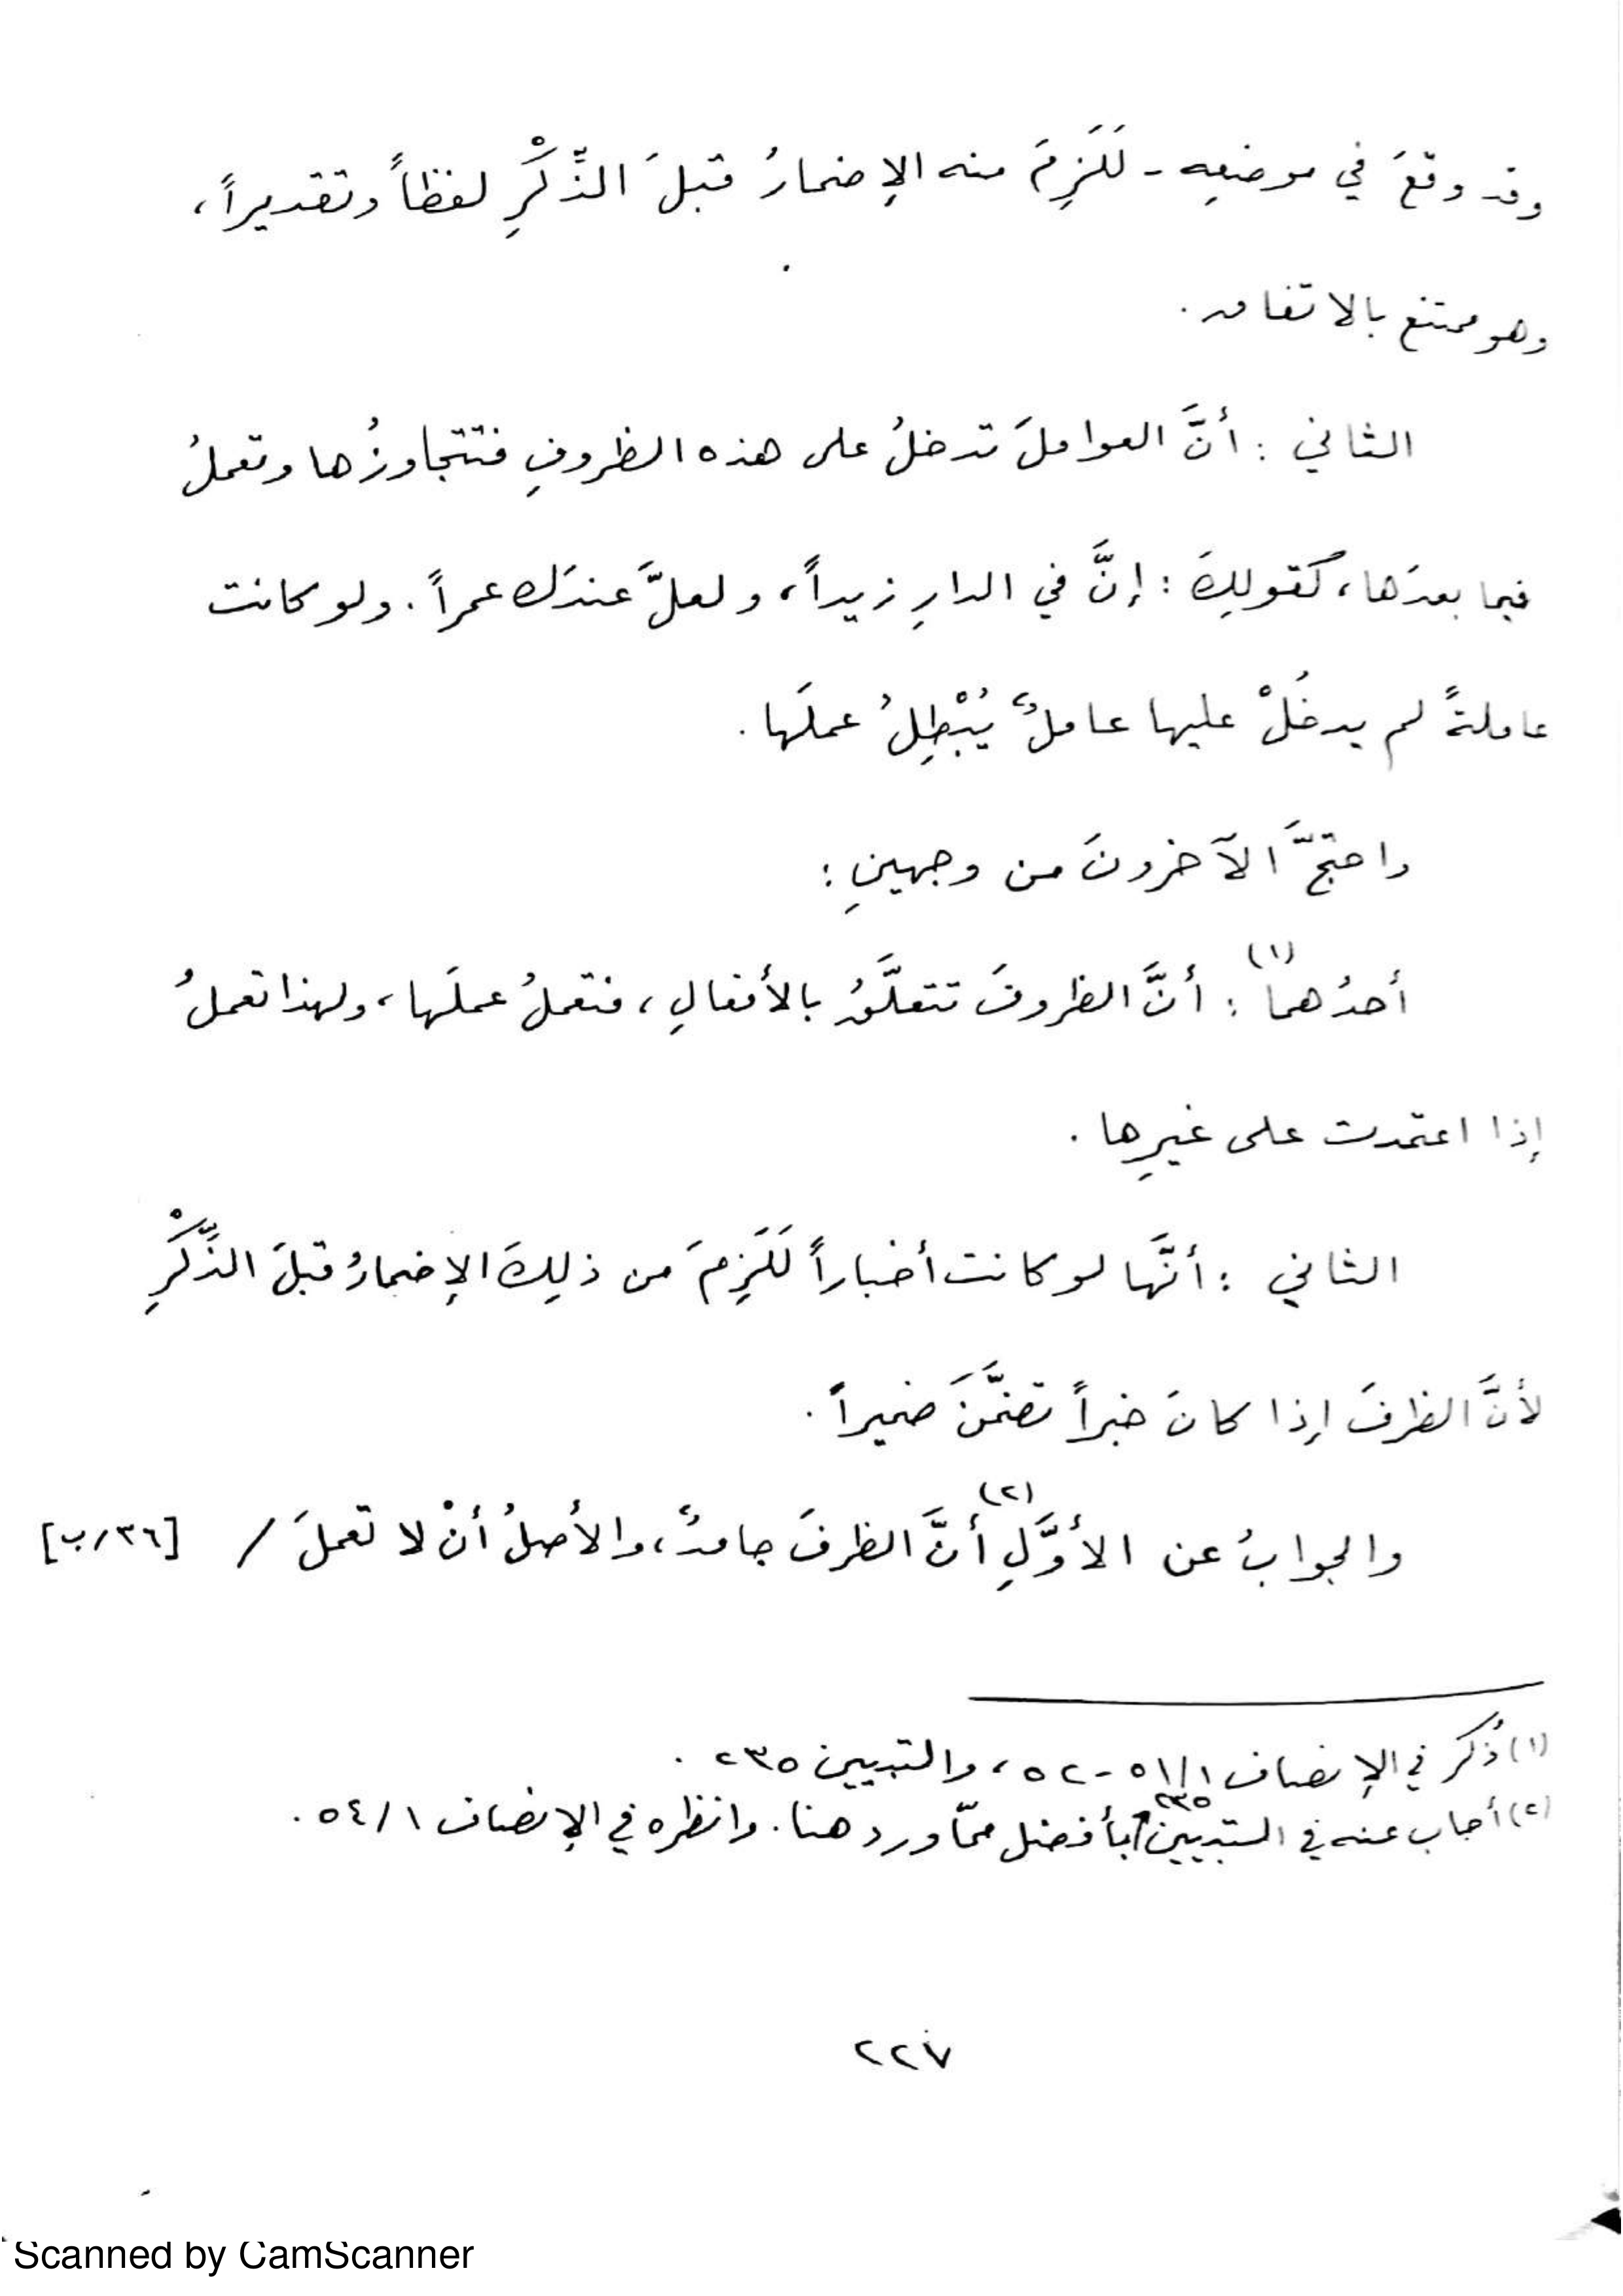 وقد وقعَ في موضعِه - لَلَزِمَ منه الإِضمارُ قبلَ الذِّكْرِ لفظاً وتقديراً،
وهو ممتنع بالاتفاق.
الثاني : أنَّ العواملَ تدخلُ على هذه الظروفِ فتتجاوزُها وتعملُ
فيما بعدَها، كقولِكَ : إنَّ في الدارِ زيداً، ولعلَّ عندَك عمراً. ولو كانت
عاملةً لم يدخُلْ عليها عاملٌ يُبْطِلُ عملَها.
واحتجَّ الآخرونَ من وجهينِ :
أحدُهما(١) : أنَّ الظروفَ تتعلَّقُ بالأفعالِ، فتعملُ عملَها، ولهذا تعملُ
إذا اعتمدت على غيرِها.
الثاني : أنَّها لو كانت أخباراً لَلَزِمَ من ذلِكَ الإِضمارُ قبلَ الذِّكْرِ
لأنَّ الظرفَ إذا كانَ خبراً تضمَّنَ ضميراً.
والجوابُ عن الأوَّلِ(٢) أنَّ الظرفَ جامدٌ، والأصلُ أنْ لا تعملَ / [٣٦/ب]
(١) ذُكر في الإنصاف ٥١/١ - ٥٢، والتبيين ٢٣٥.
(٢) أجاب عنه في التبيين ٢٣٥ بأفضل ممّا ورد هنا. وانظره في الإنصاف ٥٤/١.
٢٢٧
Scanned by CamScanner